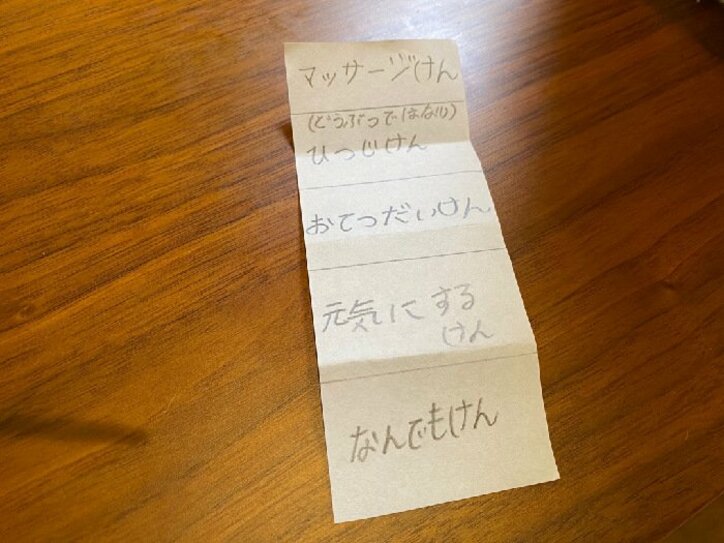 マッサージけん
(どうぶつではない)
ひつじけん
おてつだいけん
元気にする
けん
なんでもけん